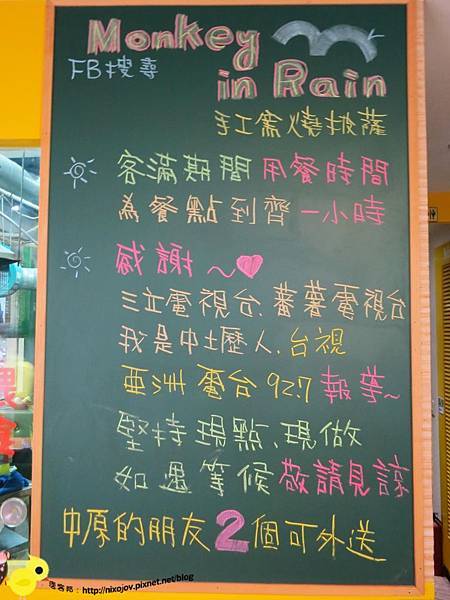 Monkey
FB搜尋 in Rain
手工窯燒披薩
客滿期間用餐時間
為餐點到齊一小時
感謝～
三立電視台、蕃薯電視台
我是中壢人、台視
亞洲電台92.7報導～
堅持現點、現做
如遇等候敬請見諒
中原的朋友2個可外送
痞客邦：http://nixojov.pixnet.net/blog